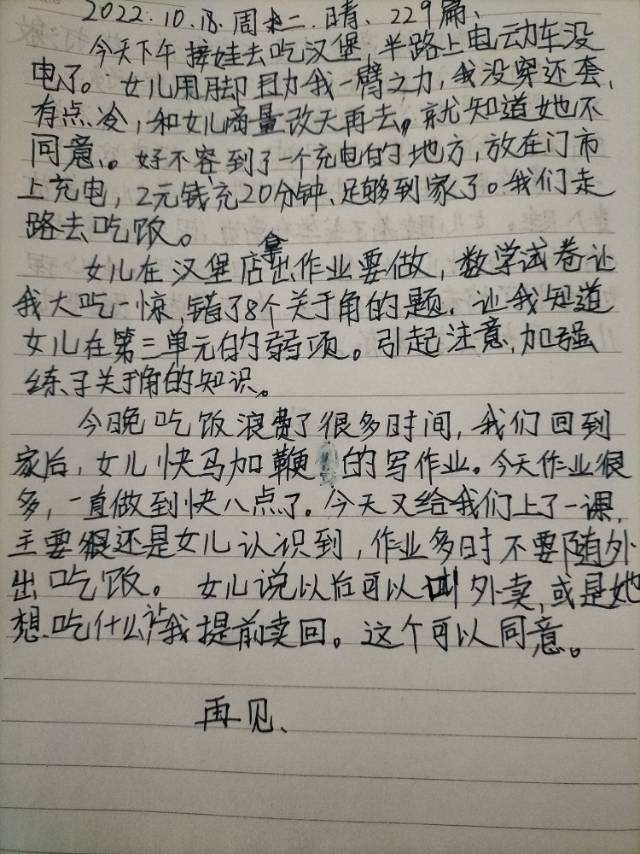 2022.10.18.周二.晴、229篇、
今天下午接娃去吃汉堡,半路上电动车没
电了。女儿用脚助我一臂之力,我没穿外套,
有点冷,和女儿商量改天再去。就知道她不
同意。好不容到了一个充电的地方,放在门市
上充电,2元钱充20分钟、足够到家了。我们走
路去吃饭。
女儿在汉堡店拿出作业要做,数学试卷让
我大吃一惊,错了8个关于角的题.让我知道
女儿在第三单元的弱项。引起注意,加强
练习关于角的知识。
今晚吃饭浪费了很多时间,我们回到
家后,女儿快马加鞭的写作业。今天作业很
多,一直做到快八点了。今天又给我们上了一课,
主要还是女儿认识到,作业多时不要随外
出吃饭。女儿说以后可以叫外卖,或是她
想吃什么让我提前卖回。这个可以同意。
再见、